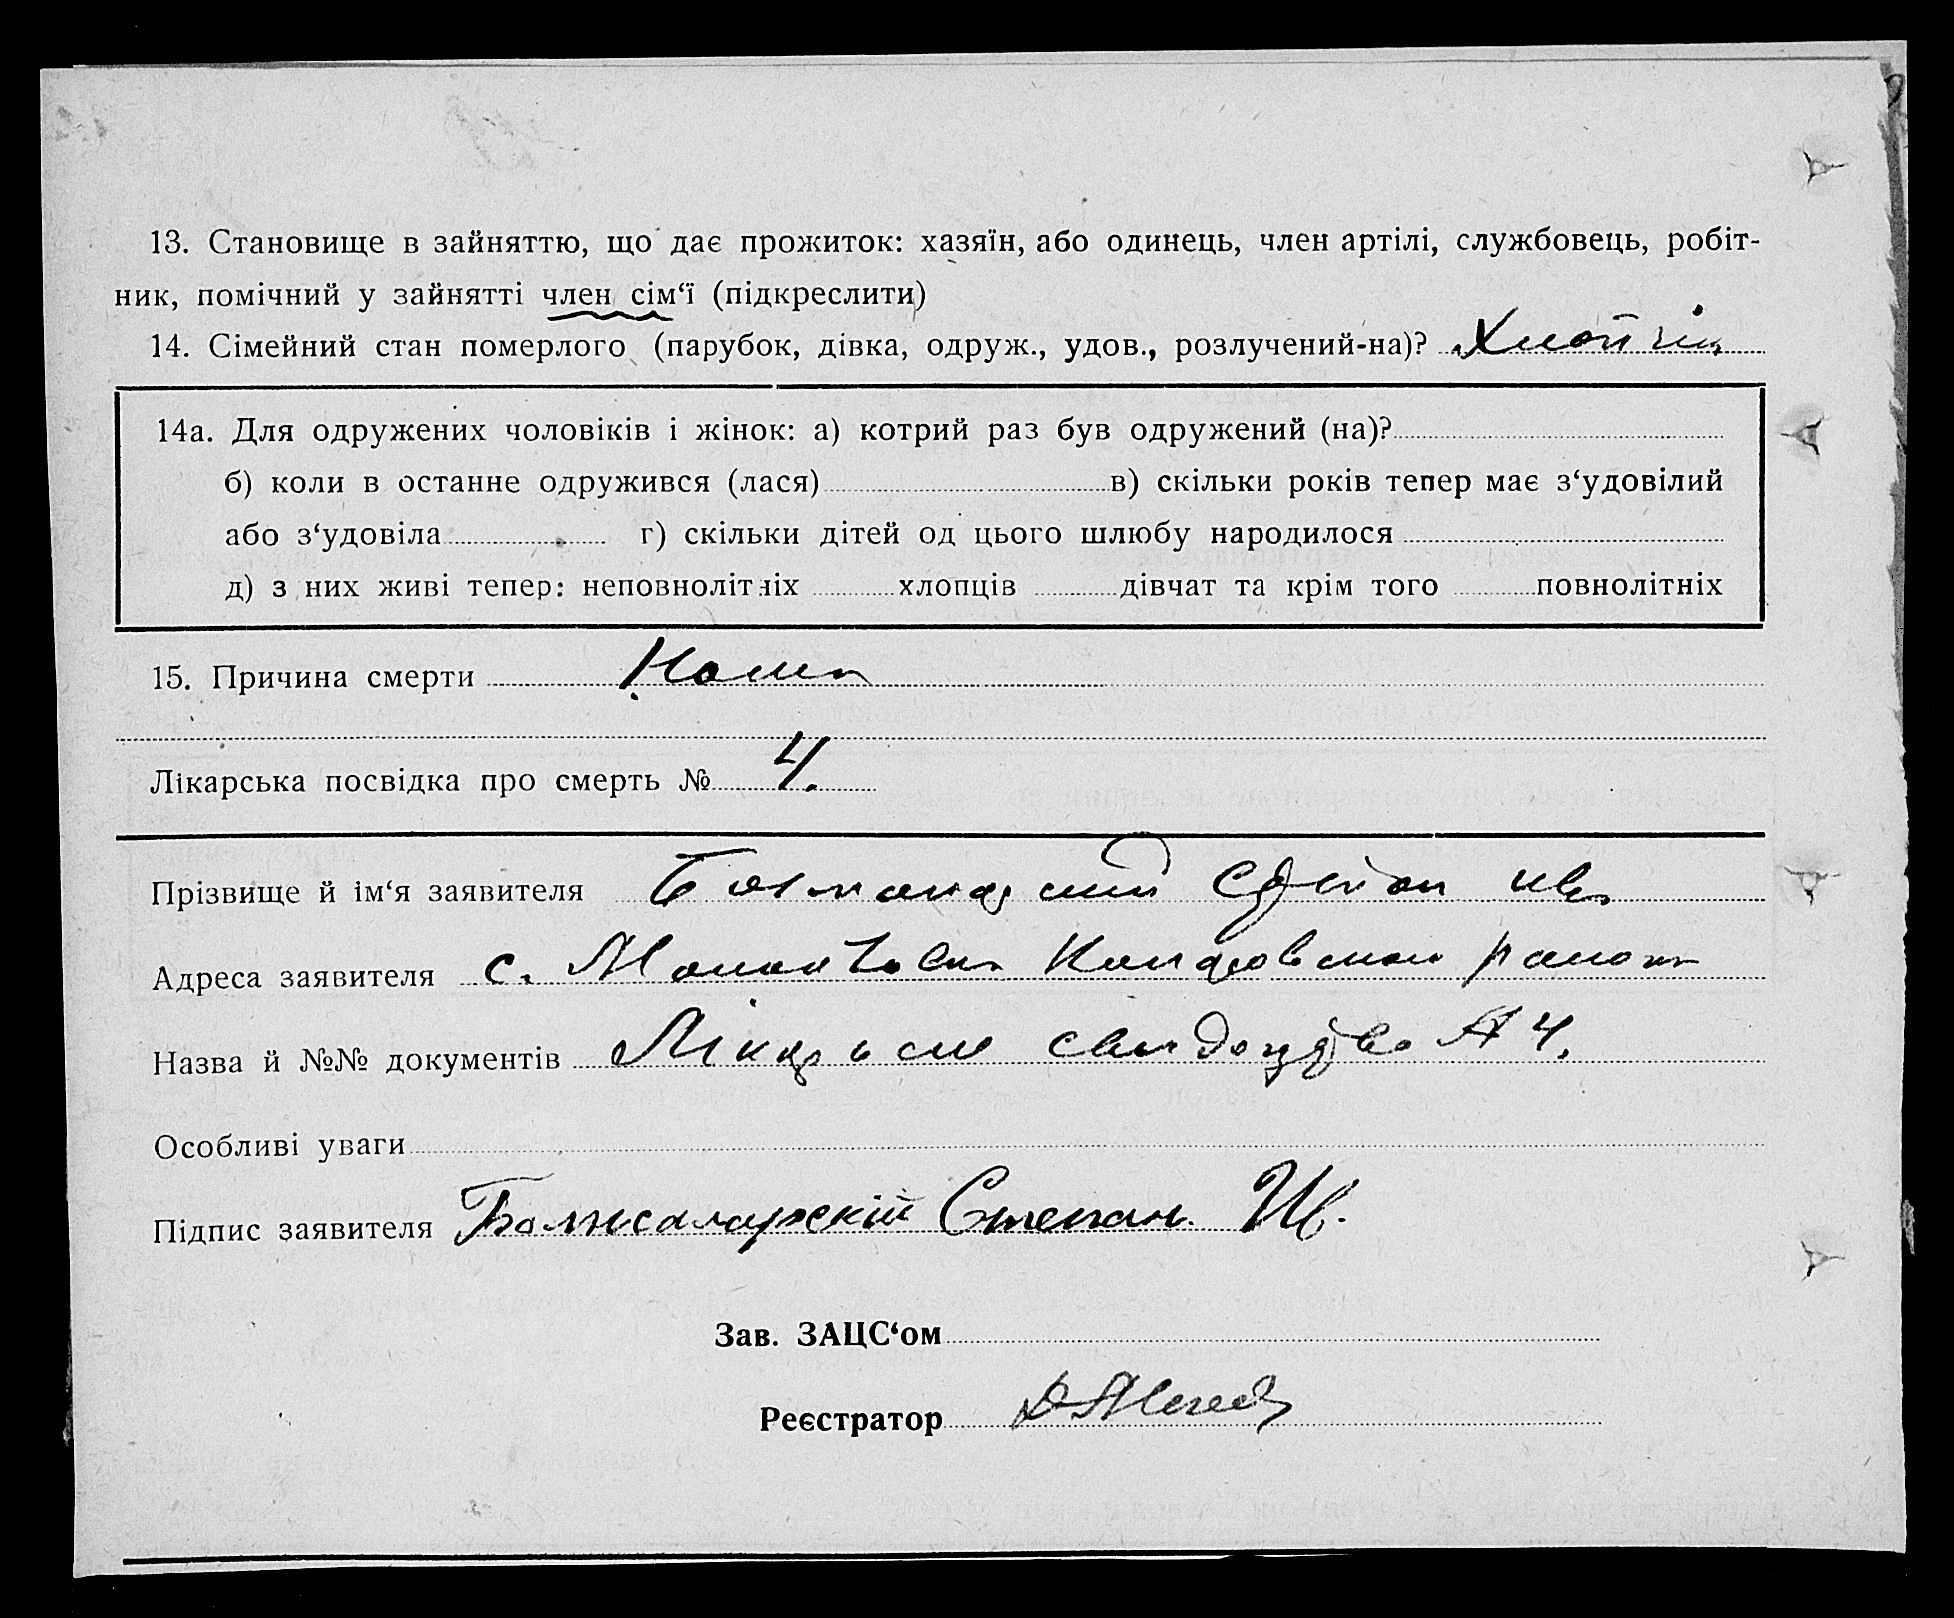 13. Становище в зайняттю, що дає прожиток: хазяїн, або одинець, член артілі, службовець, робіт-
ник, помічний у зайнятті член сім‘ї (підкреслити)
14. Сімейний стан померлого (парубок, дівка, одруж., удов., розлучений-на)? Хлопчик
14а. Для одружених чоловіків і жінок: а) котрий раз був одружений (на)?
б) коли в останне одружився (лася) в) скільки років тепер має з‘удовілий
або з‘удовіла г) скільки дітей од цього шлюбу народилося
д) з них живі тепер: неповнолітніх хлопців дівчат та крім того повнолітніх
15. Причина смерти
Лікарська посвідка про смерть № 4.
Прізвище й ім‘я заявителя Степан Ив.
Адреса заявителя с. района
Назва й №№ документів Лікарьске свидоцтво № 4.
Особливі уваги
Підпис заявителя Степан Ив.
Зав. ЗАЦС‘ом
Реєстратор